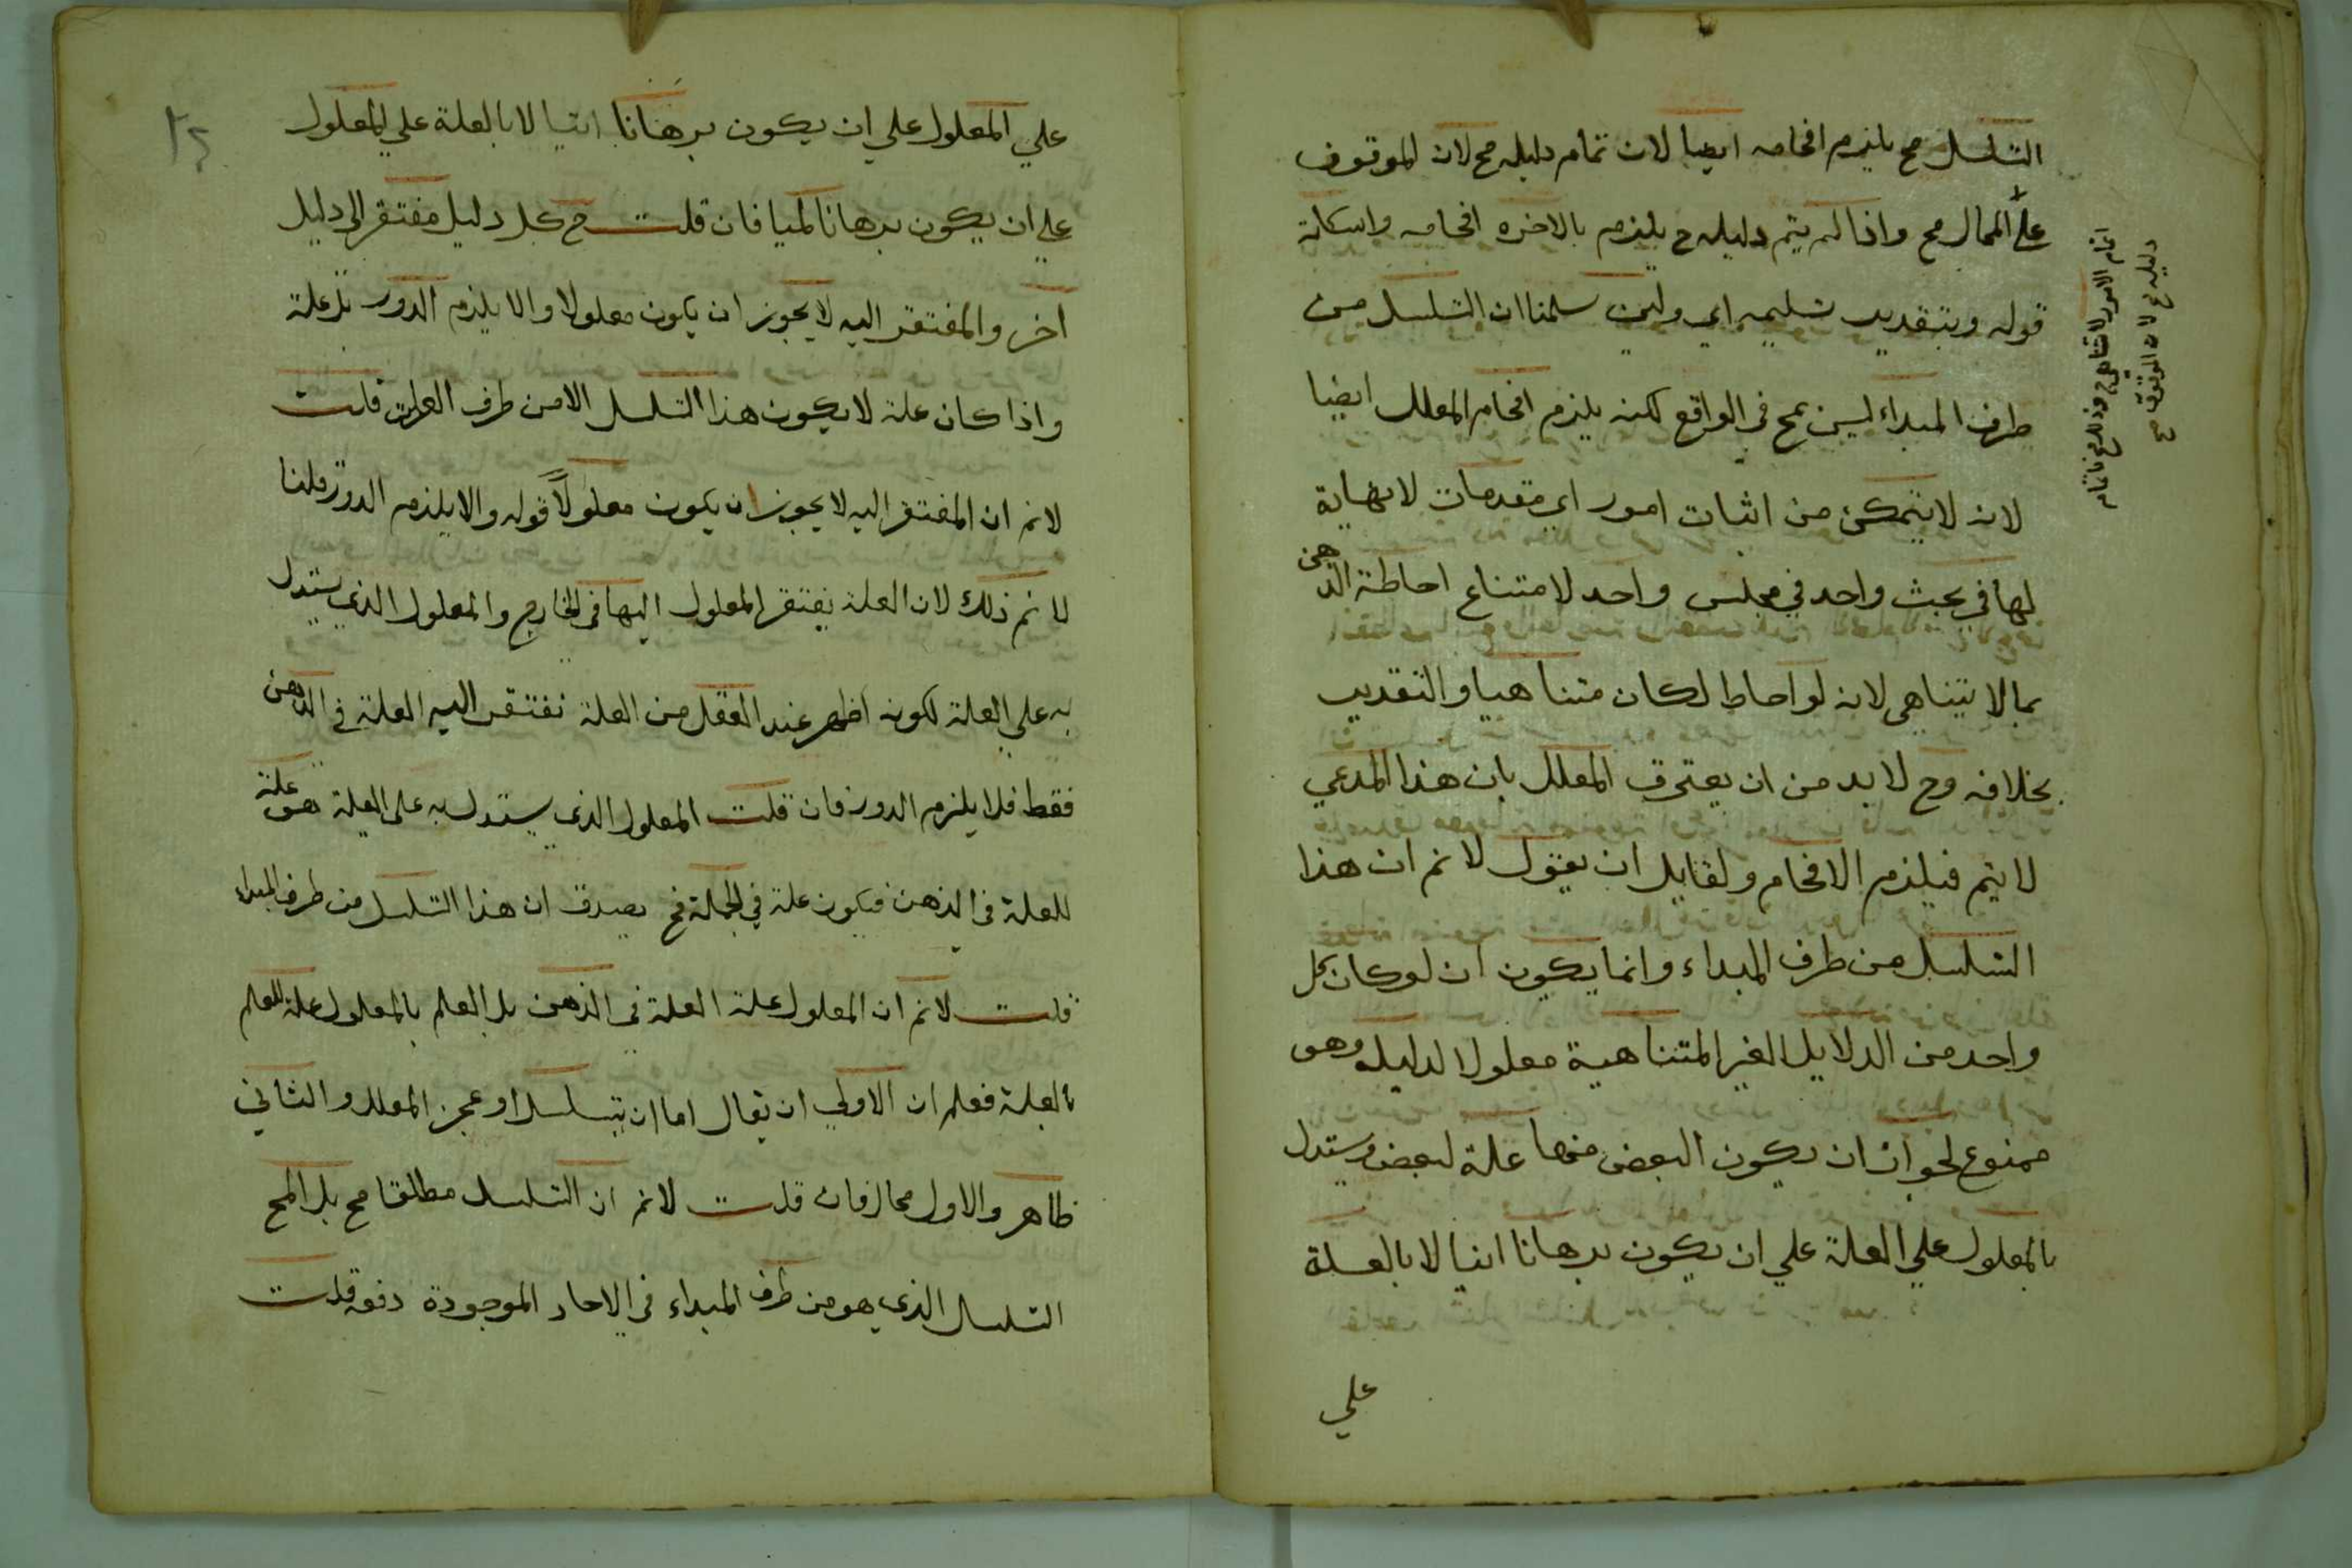 التسلسل مح يلزم افحامه ايضا لان تمام دليله مح لان الموقوف
علي المحال مح واذا لم يتم دليله ح يلزم بالاخره افحامه واسكاته
قوله وبتقدير تسليمه اي ولين سلمنا ان التسلسل من
طرف المبداء ليس بمح في الواقع لكنه يلزم افحام المعلل ايضا
لانه لا يتمكن من اثبات امور اي مقدمات لا نهاية
لها في بحث واحد في مجلس واحد لامتناع احاطة الذهن
بما لا يتناهي لانه لو احاط لكان متناهيا والتقدير
بخلافه وح لا بد من ان يعترف المعلل بان هذا المدعي
لا يتم فيلزم الافحام ولقايل ان يقول لا نم ان هذا
التسلسل من طرف المبداء وانما يكون ان لو كان كل
واحد من الدلايل الغير المتناهية معلولا لدليله وهو
ممنوع لجواز ان يكون البعض منها علة لبعض ويستدل
بالمعلول علي العلة علي ان يكون برهانا انيا لا بالعلة
علي
دليله مح لان الموقوف مح
علي المعلول علي ان يكون برهانا انيا لا بالعلة علي المعلول
علي ان يكون برهانا لميا فان قلت ح كل دليل مفتقر الي دليل
اخر والمفتقر اليه لا يجوز ان يكون معلولا والا يلزم الدور بل علة
واذا كان علة لا يكون هذا التسلسل الا من طرف العلة قلت
لا نم ان المفتقر اليه لا يجوز ان يكون معلولا قوله والا يلزم الدور قلنا
لا نم ذلك لان العلة يفتقر المعلول اليها في الخارج والمعلول الذي يستدل
به علي العلة لكونه اظهر عند العقل من العلة تفتقر اليه العلة في الذهن
فقط فلا يلزم الدور فان قلت المعلول الذي يستدل به علي العلة هو علة
للعلة في الذهن فيكون علة في الجملة فح يصدق ان هذا التسلسل من طرف المبداء
قلت لا نم ان المعلول علة العلة في الذهن بل العلم بالمعلول علة للعلم
بالعلة فعلم ان الاولي ان يقال اما ان يتسلسل او عجز المعلل والثاني
ظاهر والاول محال فان قلت لا نم ان التسلسل مطلقا مح بل المح
التسلسل الذي هو من طرف المبداء في الاحاد الموجودة دفعه قلت